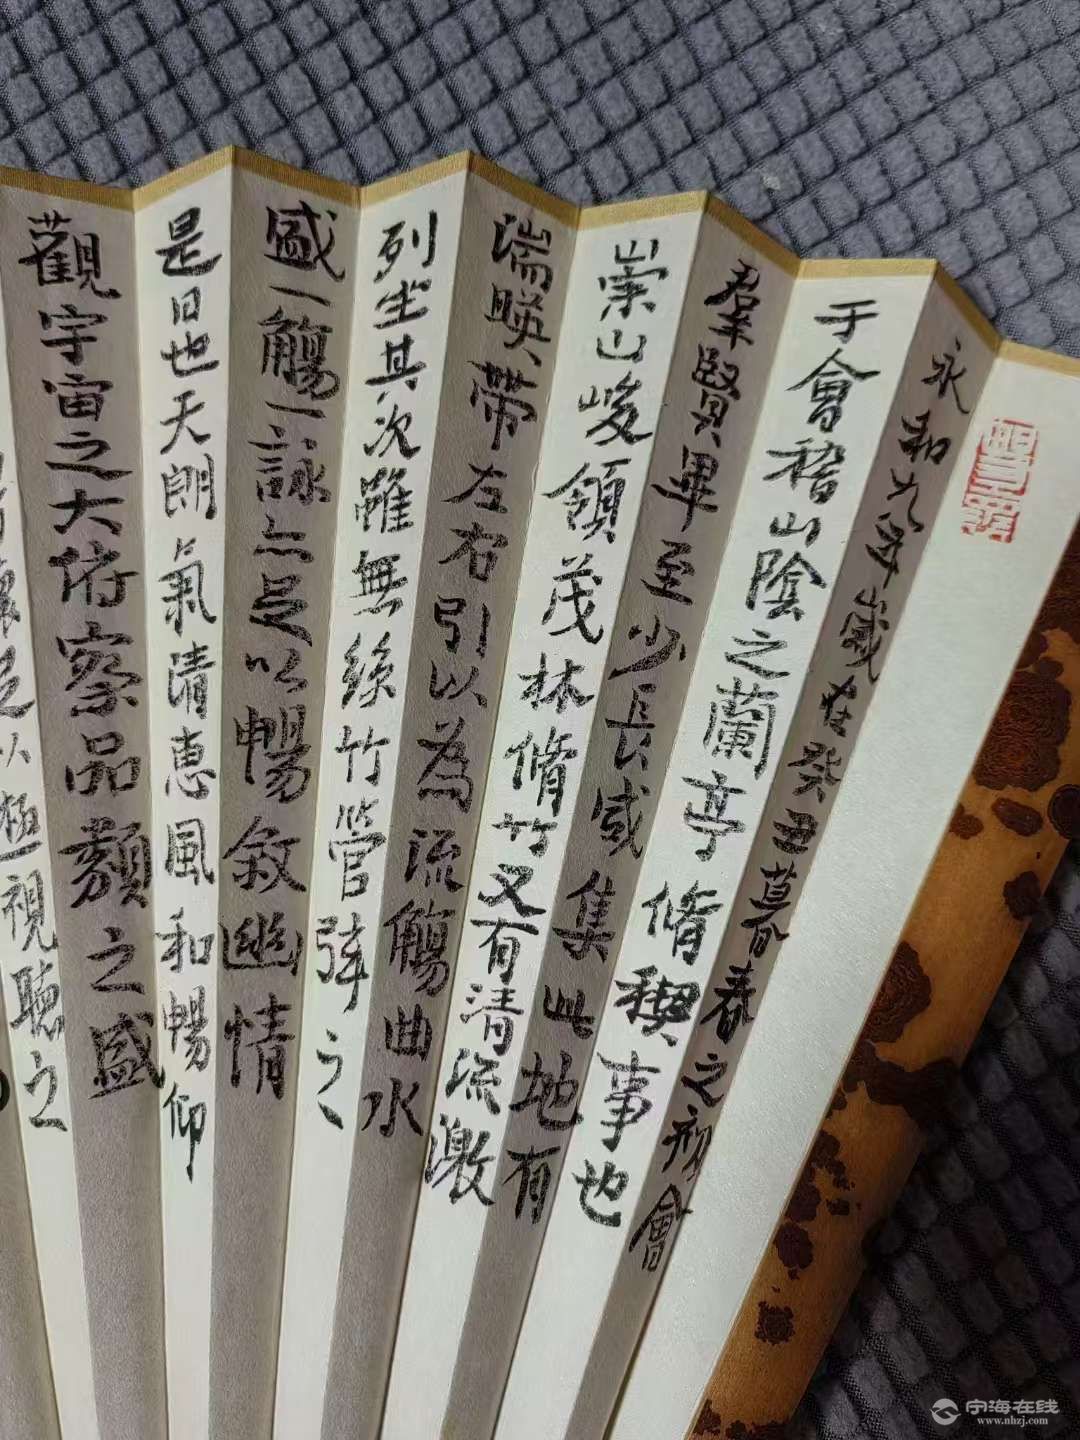 永和九年歲在癸丑暮春之初會
于會稽山陰之蘭亭脩稧事也
羣賢畢至少長咸集此地有
崇山峻領茂林脩竹又有清流激
湍暎帶左右引以為流觴曲水
列坐其次雖無絲竹管弦之
盛一觴一詠亦足以暢敘幽情
是日也天朗氣清惠風和暢仰
觀宇宙之大俯察品類之盛
懷足以極視聽之
宁海在线
www.nhzj.com